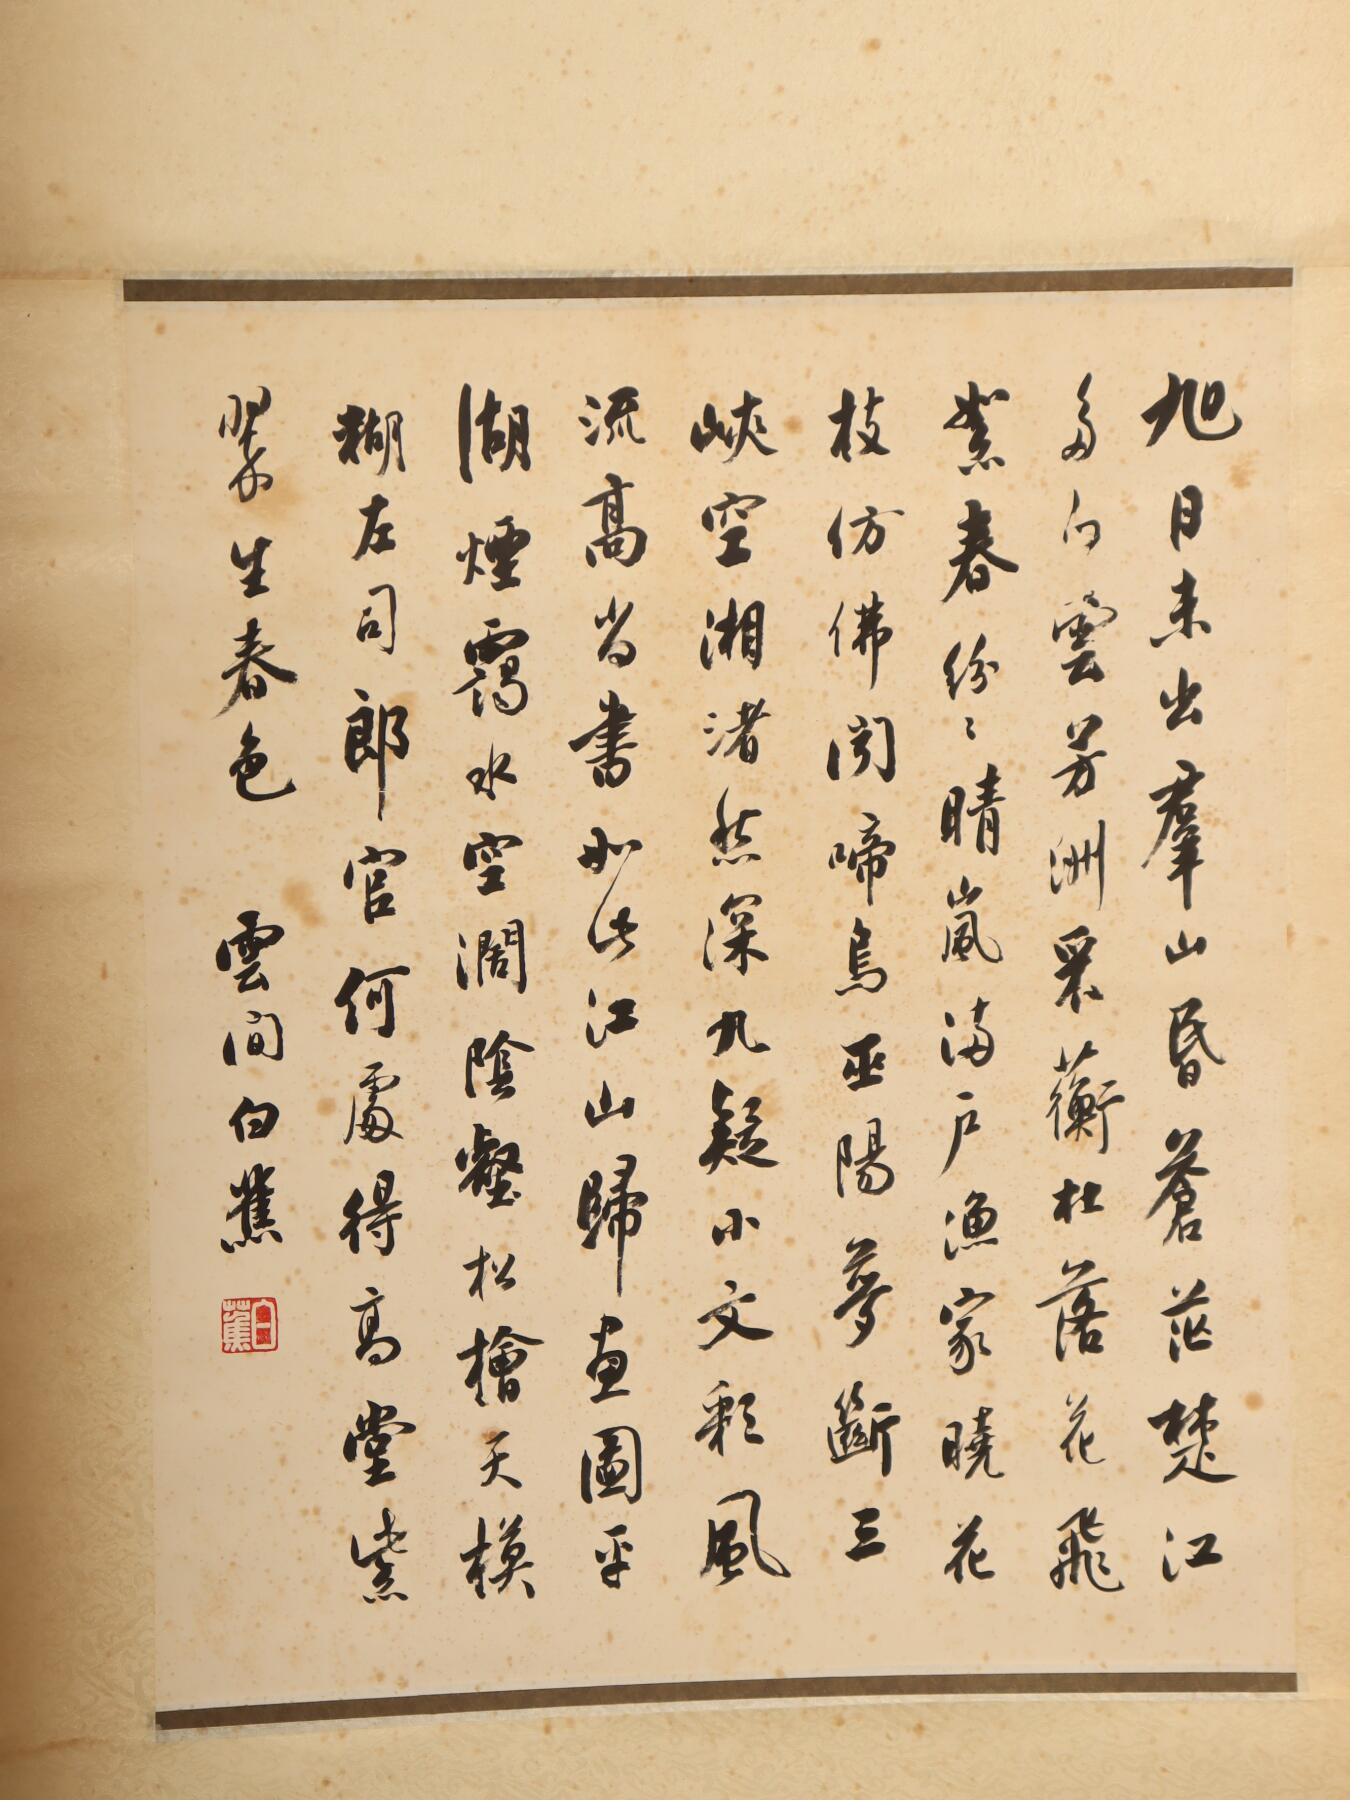 旭日未出羣山昏蒼茫楚江
多白雲芳洲采蘅杜落花飛
絮春紛〻晴嵐滿戶漁家曉花
枝仿佛聞啼烏巫陽夢斷三
峽空湘渚愁深九疑小文彩風
流高尚書如此江山歸畫圖平
湖煙靄水空濶陰壑松檜天模
糊左司郎官何處得高堂紫
翠生春色 雲間白蕉
白蕉